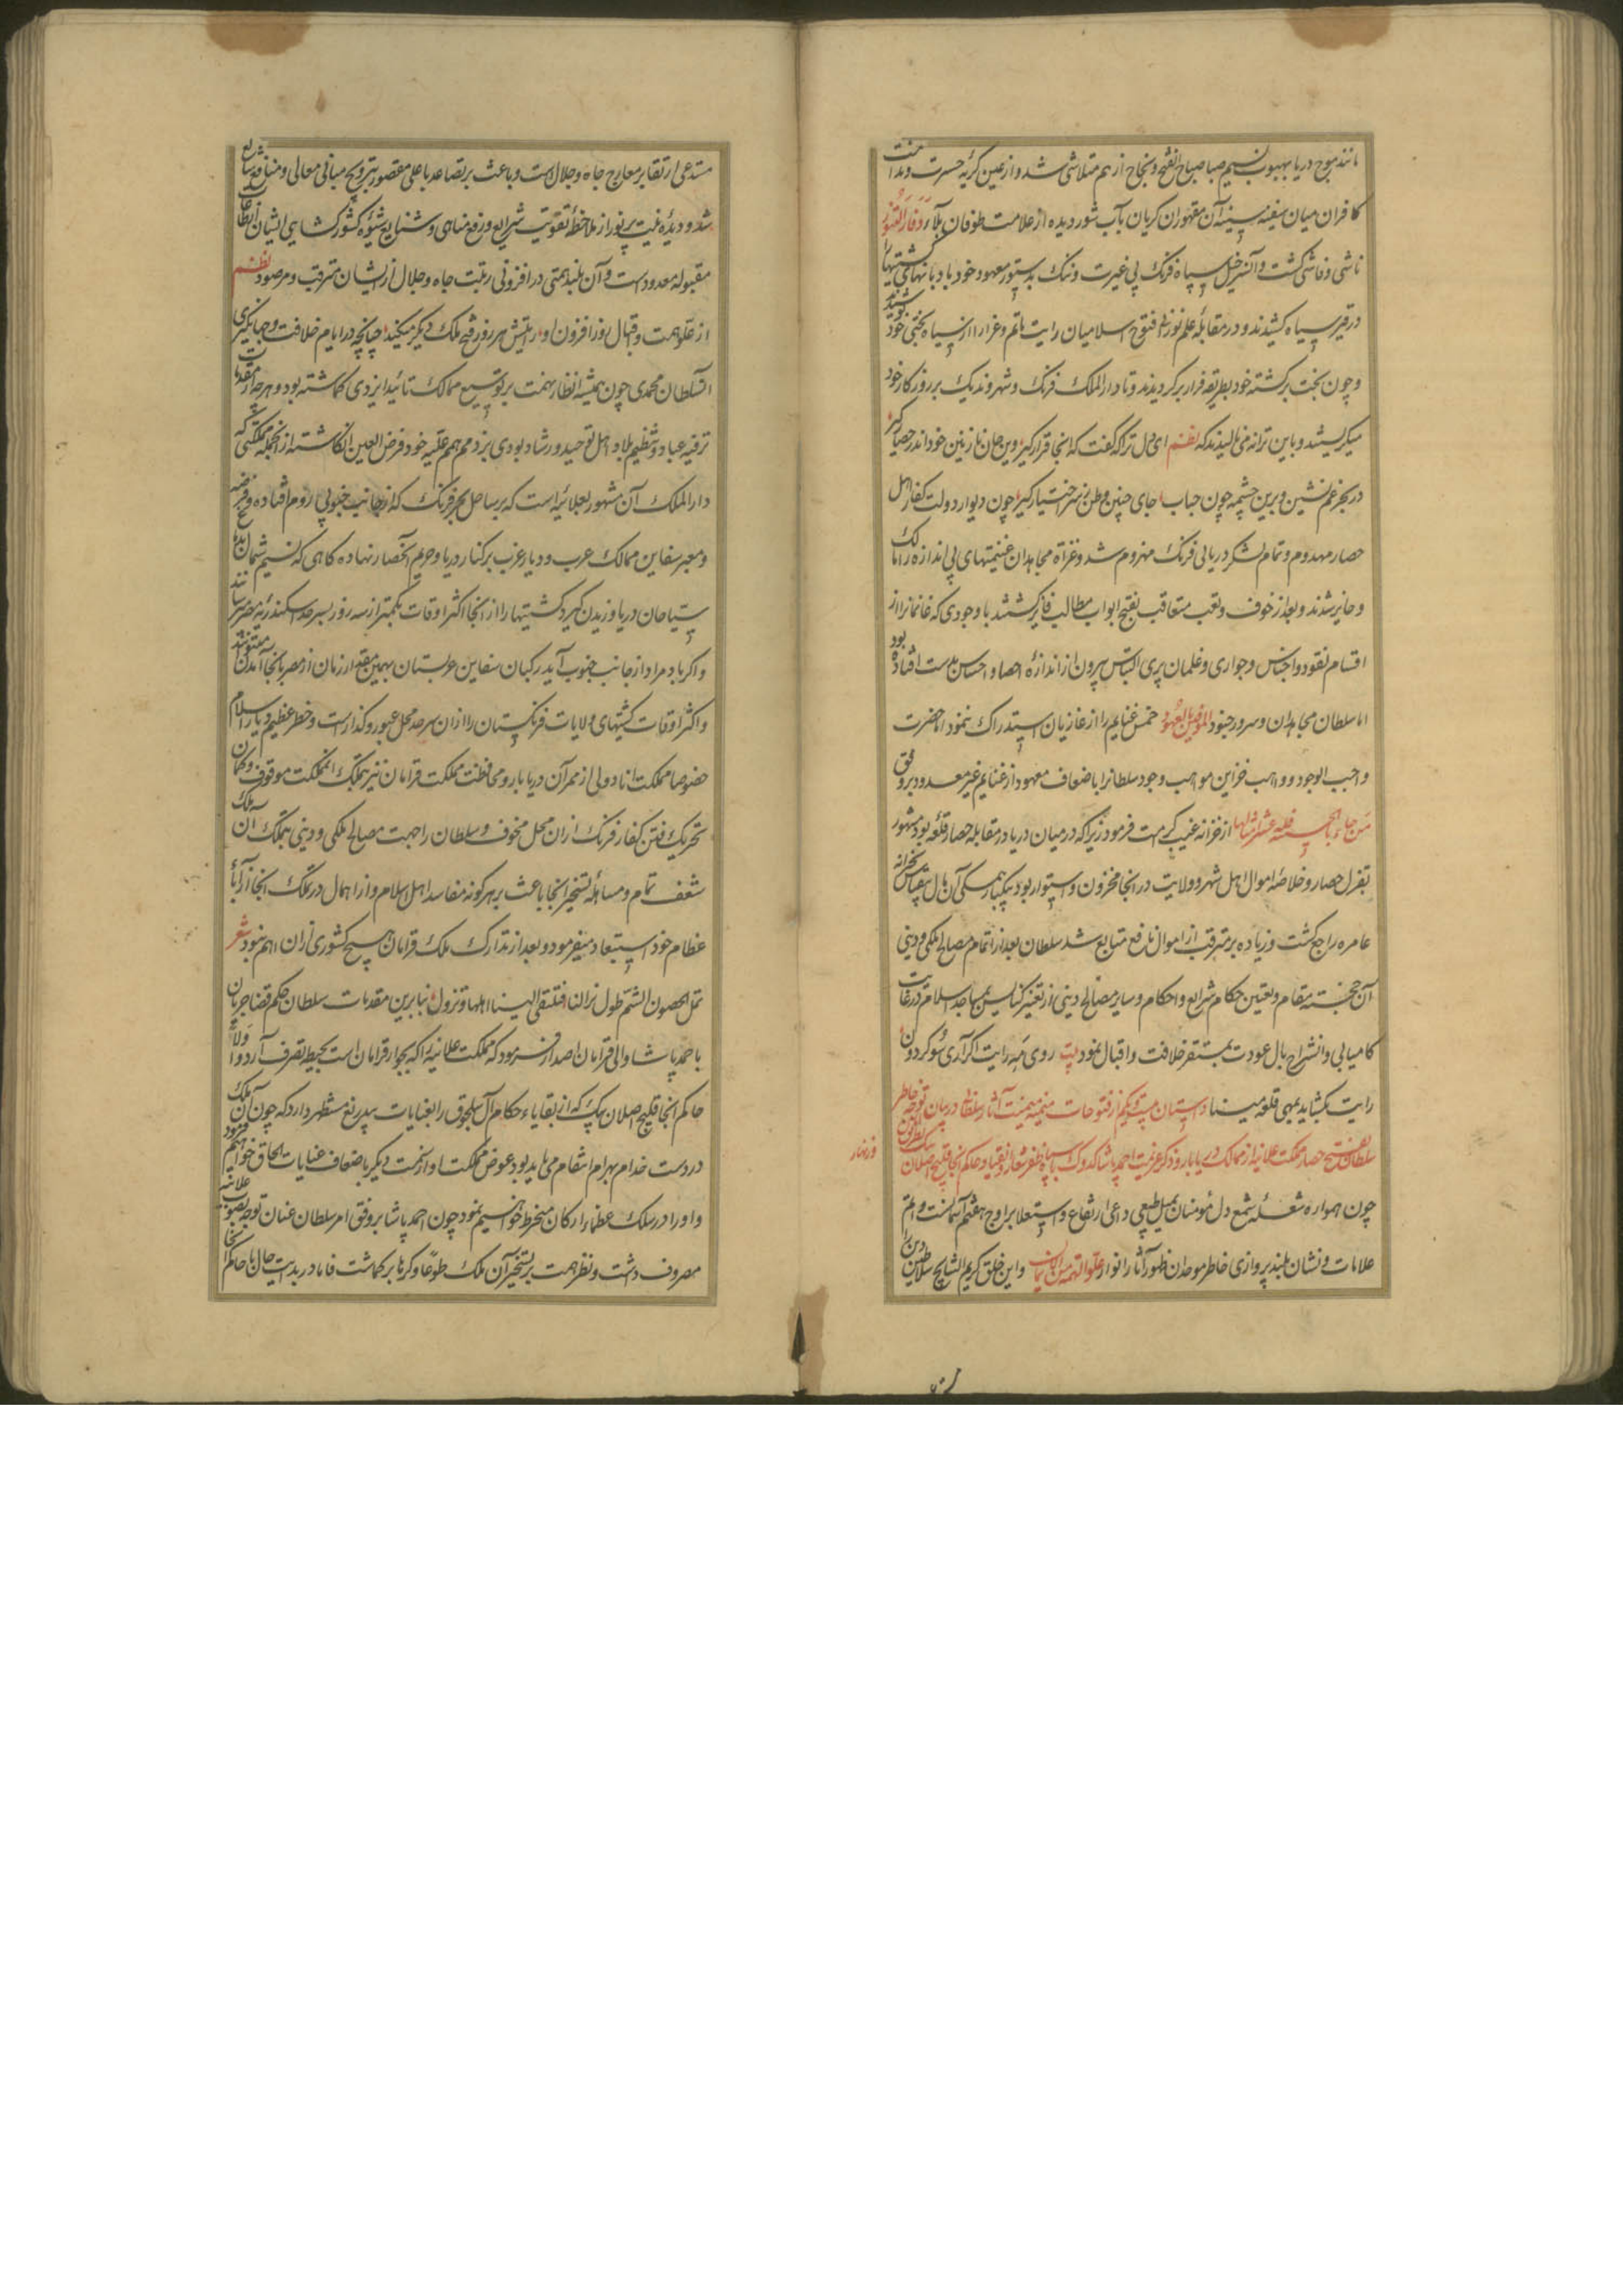 مانند موج دریا بهبوب نسیم صبا صباح الفتح و نجاح از هم متلاشی شد و از عین کریه حسرت و ندامت
کافران میان سفینه سینه آن مقهوران کریان بآب شور دیده از علامت طوفان بلا و فار التنور
ناشی و فاشی کشت و آنسر خیل سپاه فرنک بی غیرت و ننک بدستور معهود خود بادبانهای کشتیها را
در قیر سیاه کشیدند و در مقابله علم نوز ظفر فتوح اسلامیان رایت ماتم و عزا را از سیاه بختی خود
و چون بخت برکشته خود بطریقه فرار برکردیدند و تا دار الملک فرنک و شهر وندیک بر روزکار خود
میکریستند و باین ترانه می نالیدند که نظم ای دل ترا که کفت که اینجا قرار کیر وین جان نازنین خود اندر حصار کیر
در بحر غم نشین و برین چشمه چون حباب جای چنین وطن ز سر اختیار کیر چون دیوار دولت کفار اهل
حصار مهدوم و تمام لشکر دریایی فرنک منهزم شد و غزاة مجاهدان غنیمتهای بی اندازه را مالک
و حایز شدند و بعد از خوف و تعب متعاقب بفتح ابواب مطالب فایز کشتند با وجودی که غانمانرا از
اقسام نقود و اجناس و جواری و غلمان پری التباس بیرون از اندازه احصا و احساس بدست افتاده بود
اما سلطان مجاهدان و سرور جنود الموفین بالعهود خمس غنایم را از غازیان استدراک ننمود اما حضرت
واجب الوجود و واهب خزاین مواهب وجود سلطانرا باضعاف معهود از غنایم غیر معدود بر وفق
من جاء بالحسنة فله عشر امثالها از خزانه غیب کرمت فرمود زیرا که در میان دریا در مقابله حصار قلعه بود مشهور
بقزل حصار و خلاصه اموال اهل شهر و ولایت در انجا مخزون و استوار بود یکبار همکی آن مال بیقیاس بخزانه
عامره راجع کشت و زیاده بر مترقب از اموال نافع متابع شد سلطان بعد از اتمام مصالح ملکی و دینی
آن خجسته مقام و تعیین حکام شرایع و احکام و سایر مصالح دینی از تغییر کنایس بمساجد اسلام در غایت
کامیابی و انشراح بال عودت بمستقر خلافت و اقبال نمود بیت روی مه رایت اکر آری سوی کردون
رایت بکشاید بمهی قلعه مینا داستان بیست و یکم از فتوحات منیمنه میمنت آثار سلطانی در بیان توجه خاطر
سلطان بفتح حصار مملکت علائیه از ممالک دریابار و ذکر عزیمت احمد پاشا کدوک با سپاه ظفر شعار و انقیاد حاکم انجا قلیج اصلان بیک بطریق
ورنهار
چون همواره شعله شمع دل مؤمنان بمیل طبیعی داعی ارتفاع و استعلا بر اوج هفتم آسمانست و اتم
علامات و نشان بلند پروازی خاطر موحدان ظهور آثار انوار علو الهمة من الایمان و این خلق کریم النتایج سلاطین دین را
مستدعی ارتقا بر معارج جاه و جلال است و باعث بر تصاعد باعلی مقصور بترویج مبانی معالی و منافع شایع
شد و دیده نیت پر نور از ملاحظه تقویت شرایع و رفع مناهی و شنایع شیوه کشورکشایی ایشان از طاعات
مقبوله معدود است و آن بلند همتی در افزونی رتبت جاه و جلال از ایشان مترقب و مرصود نظم
از علو همت و اقبال روز افزون او رایتش هر روز فتح ملک دیکر میکند چنانچه در ایام خلافت و جهانکیری
السلطان محمدی چون همیشه انظار همت بر توسیع ممالک تائید ایزدی کماشته بود و هر چه از مقدمات
ترفیه عباد و تنظیم بلاد اهل توحید و رشاد بودی بر ذمم همم علیه خود فرض العین انکاشته از انجمله مملکتی که
دار الملک آن مشهور بعلائیه است که بر ساحل بحر فرنک که از جانب جنوبی روم افتاده و فرضه
و معبر سفاین ممالک عرب و دیار غرب بر کنار دریا و حریم آنحصار نهاده کاهی که نسیم شمال بمدد
سیاحان دریا وزیدن کیرد کشتیها را از انجا اکثر اوقات بکمتر از سه روز بسر حد اسکندریه مصر رسانند
و اکر باد مراد از جانب جنوب آید رکبان سفاین عربستان بهمین مقدار زمان از مصر بانجا آمدن میتوانند
و اکثر اوقات کشتیهای ولایات فرنکستان را از ان سرحد محل عبور و کذار است و خطر عظیم دیار اسلام
خصوصا مملکت انادولی از ممر آن دریابار و محافظت مملکت قرامان نیز بتملک انمملکت موقوف و کمان
تحریک و فتن کفار فرنک از ان محل مخوف و سلطان را جهت مصالح ملکی و دینی بتملک آن ملک
شعف تمام و مساهله تسخیر انجا باعث بر هر کونه مفاسد اهل اسلام و از اهمال در تملک انجا از آبا
عظام خود استبعاد میفرمود و بعد از تدارک ملک قرامان هیچ کشوری از ان اهم نبود شعر
تمل الحصون الشم طول نزالنا فتلقی الینا اهلها و تزول بنابرین مقدمات سلطان حکم قضا جریان
باحمد پاشا والی قرامان اصدار فرمود که مملکت علائیه را که بجوار قرامان است بحیطه تصرف آرد و اولا
حاکم انجا قلیج اصلان بیک که از بقایاء حکام آل سلجوق را بعنایات بیدریغ مستظهر دارد که چون آن ملک
در دست خدام بهرام انتقام می باید بود عوض مملکت او از سمت دیکر باضعاف عنایات الحاق خواهیم فرمود
و او را در سلک عظماء ارکان منخرط خواهیم نمود چون احمد پاشا بر وفق امر سلطان عنان توجه بصوب علائیه
مصروف داشت و نظر همت بر تسخیر آن ملک طوعا و کرها برکماشت فاما در بدایت حال با حاکم انجا